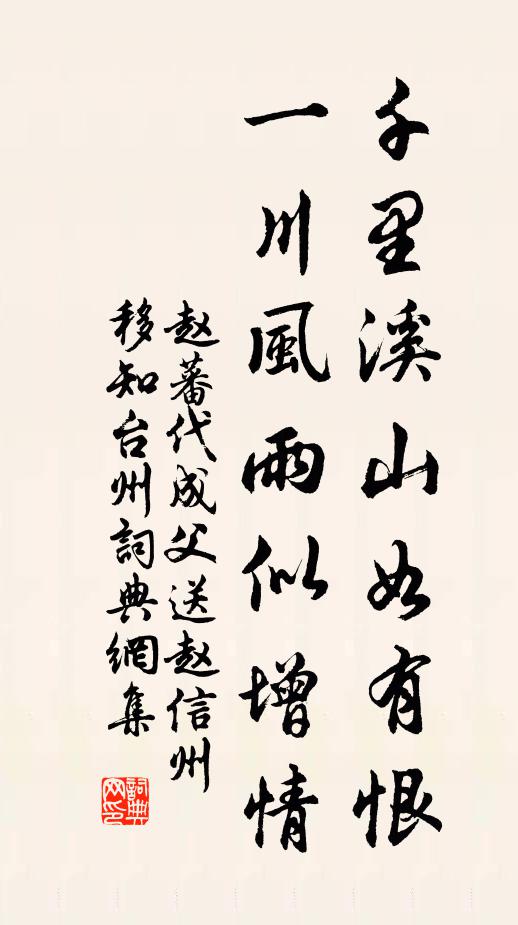 千里溪山如有恨
一川風雨似增情
赵蕃代成父送赵信州
移知台州詞典網集
詞典網印